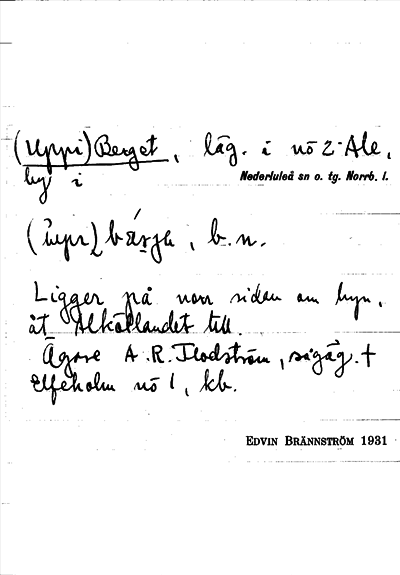 (Uppi) Berget, läg. i nö 2 Ale,
by i Nederluleå sn o. tg. Norrb. l.
(ùpı) bærja, b.n.
Ligger på norr sidan om byn,
åt Alkällandet till.
Ägare A.R. Flodström, sågäg. +
Elfsholm nö 1, kb.
EDVIN BRÄNNSTRÖM 1931